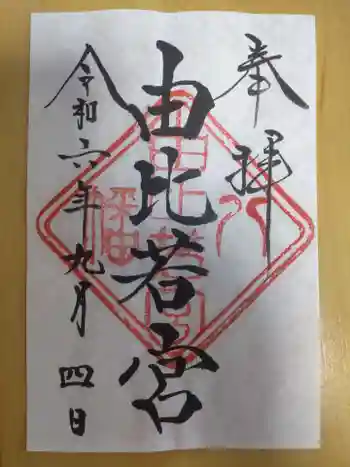 奉拝
由比若宮
令和六年九月四日